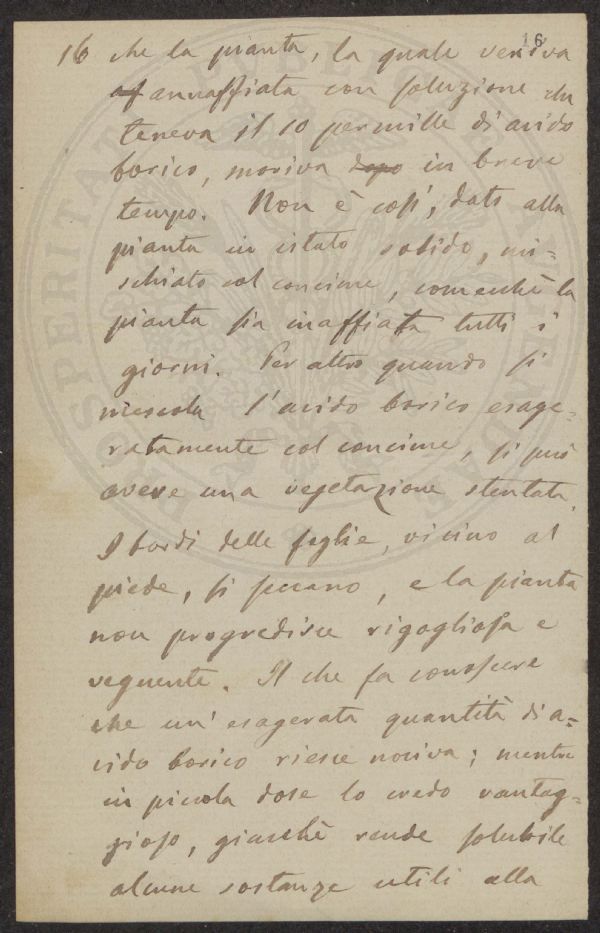 16
16 che la pianta, la quale veniva
annaffiata con soluzione che
teneva il 10 per mille di acido
borico, moriva dopo in breve
tempo. Non è così, dato alla
pianta in istato solido, mi=
schiato col concime, comechè la
pianta sia inaffiata tutti i
giorni. Per altro quando si
mescola l'acido borico esage=
ratamente col concime, si può
avere una vegetazione stentata.
I bordi delle foglie, vicino al
piede, si seccano, e la pianta
non progredisce rigogliosa e
vegnente. Il che fa conoscere
che un'esagerata quantità di a=
cido borico riesce nociva; mentre
in piccola dose lo credo vantag=
gioso, giacchè rende solubile
alcune sostanze utili alla
PROSPERITATI PUBLICAE AUGENDAE